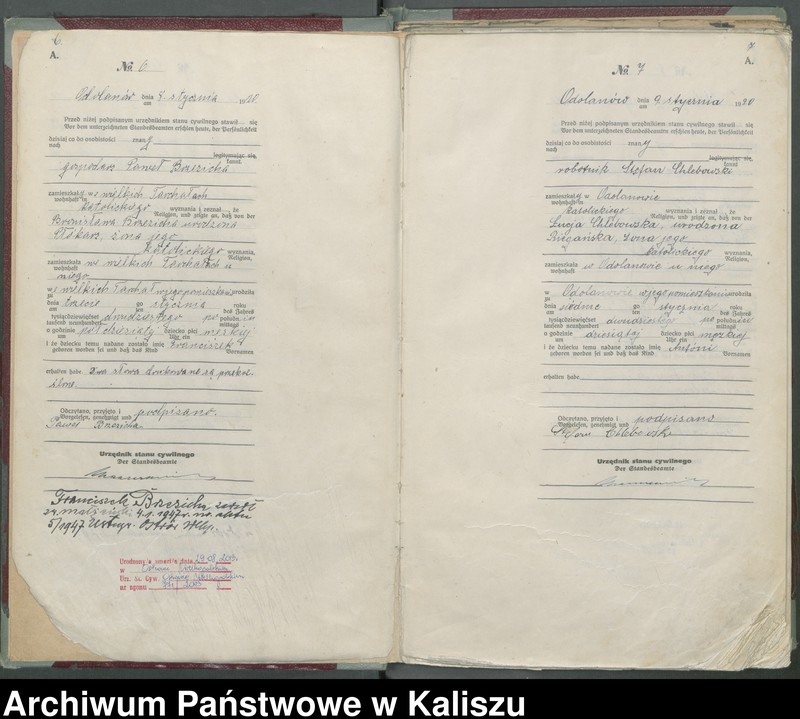 6
A.
No. 6
Odolanów dnia 8. stycznia 1920
am
Przed niżej podpisanym urzędnikiem stanu cywilnego stawił się
Vor dem unterzeichneten Standesbeamten erschien heute, der Persönlichkeit
dzisiaj co do osobistości
nach
legitymując się,
kannt,
gospodarz Paweł Brzezicha
zamieszkał y w wielkich Tarchałach
wohnhaft in
katolickiego wyznania i zeznał że
Religion, und zeigte an, daß von der
Bronisława Brzezicha urodzona
żona jego
katolickiego wyznania,
Religion,
zamieszkała we wielkich Tarchałach u
wohnhaft
niego
w wielkich Tarchałach w jego pomieszkaniu urodziła
zu
dnia trzecie go stycznia roku
am des Jahres
tysiącdziewięćset dwudziestego po południu
tausend neunhundert mittags
o godzinie dziecko płci męskiej
um Uhr ein
i że dziecku temu nadane zostało imię Franciszek
geboren worden sei und daß das Kind Vornamen
erhalten habe. Dwa słowa drukowane są przekre-
ślone.
Odczytano, przyjęto i podpisano.
Vorgelesen, genehmigt und
Paweł Brzezicha
Urzędnik stanu cywilnego
Der Standesbeamte
Franciszek Brzezicha zawarł
zw. małżeński 4.1.1947 r. nr. aktu
5/1947 Ostrów Wlkp.
Urodzony a zmarł/a dnia 29.08.2003
w Ostrów Wielkopolski
Urz. St. Cyw. Ostrów Wielkopolski
nr zgonu
7
A.
No. 7
Odolanów dnia 9. stycznia 1920
am
Przed niżej podpisanym urzędnikiem stanu cywilnego stawił się
Vor dem unterzeichneten Standesbeamten erschien heute, der Persönlichkeit
dzisiaj co do osobistości
nach
legitymując się,
kannt,
robotnik Stefan Chlebowski
zamieszkał y w Odolanowie
wohnhaft in
katolickiego wyznania i zeznał że
Religion, und zeigte an, daß von der
Łucja Chlebowska, urodzona
żona jego
katolickiego wyznania,
Religion,
zamieszkała w Odolanowie u niego
wohnhaft
w Odolanowie w jego pomieszkaniu urodziła
zu
dnia siódme go stycznia roku
am des Jahres
tysiącdziewięćset dwudziestego po południu
tausend neunhundert mittags
o godzinie dziesiątej dziecko płci męzkiej
um Uhr ein
i że dziecku temu nadane zostało imię Antoni
geboren worden sei und daß das Kind Vornamen
erhalten habe
Odczytano, przyjęto i podpisano
Vorgelesen, genehmigt und
Stefan Chlebowski
Urzędnik stanu cywilnego
Der Standesbeamte
Archiwum Państwowe w Kaliszu